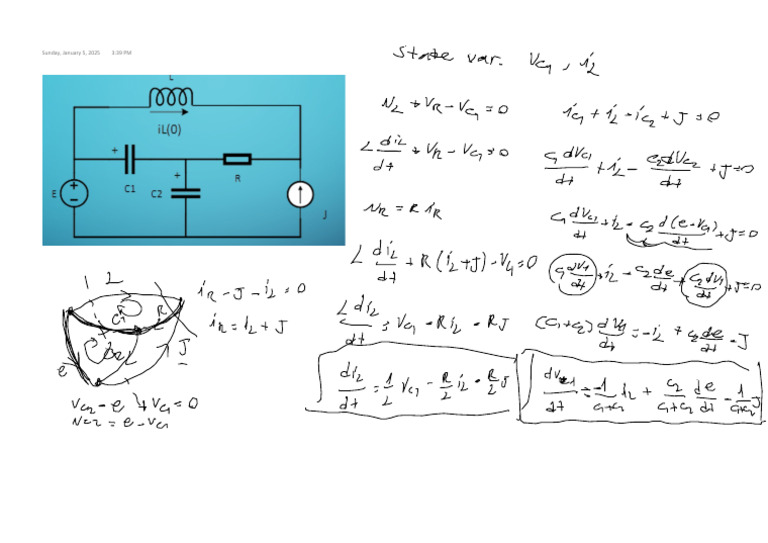 Sunday, January 5, 2025 3:39 PM
State var. V_C1, i_L
L
iL(0)
+ C1
+ C2
R
E
J
N_L + V_R - V_C1 = 0
L di_L/dt + V_R - V_C1 = 0
N_R = R i_R
L di_L/dt + R(i_L + J) - V_C1 = 0
L di_L/dt = V_C1 - R i_L - R J
di_L/dt = 1/L V_C1 - R/L i_L - R/L J
i_C1 + i_L - i_C2 + J = 0
C1 dV_C1/dt + i_L - C2 dV_C2/dt + J = 0
C1 dV_C1/dt + i_L - C2 d(e - V_C1)/dt + J = 0
C1 dV_C1/dt + i_L - C2 de/dt + C2 dV_C1/dt + J = 0
(C1 + C2) dV_C1/dt = -i_L + C2 de/dt - J
dV_C1/dt = -1/(C1 + C2) i_L + C2/(C1 + C2) de/dt - 1/(C1 + C2) J
1 L
C1 R
C2
e J
i_R - J - i_L = 0
i_R = i_L + J
V_C2 - e + V_C1 = 0
N_C2 = e - V_C1